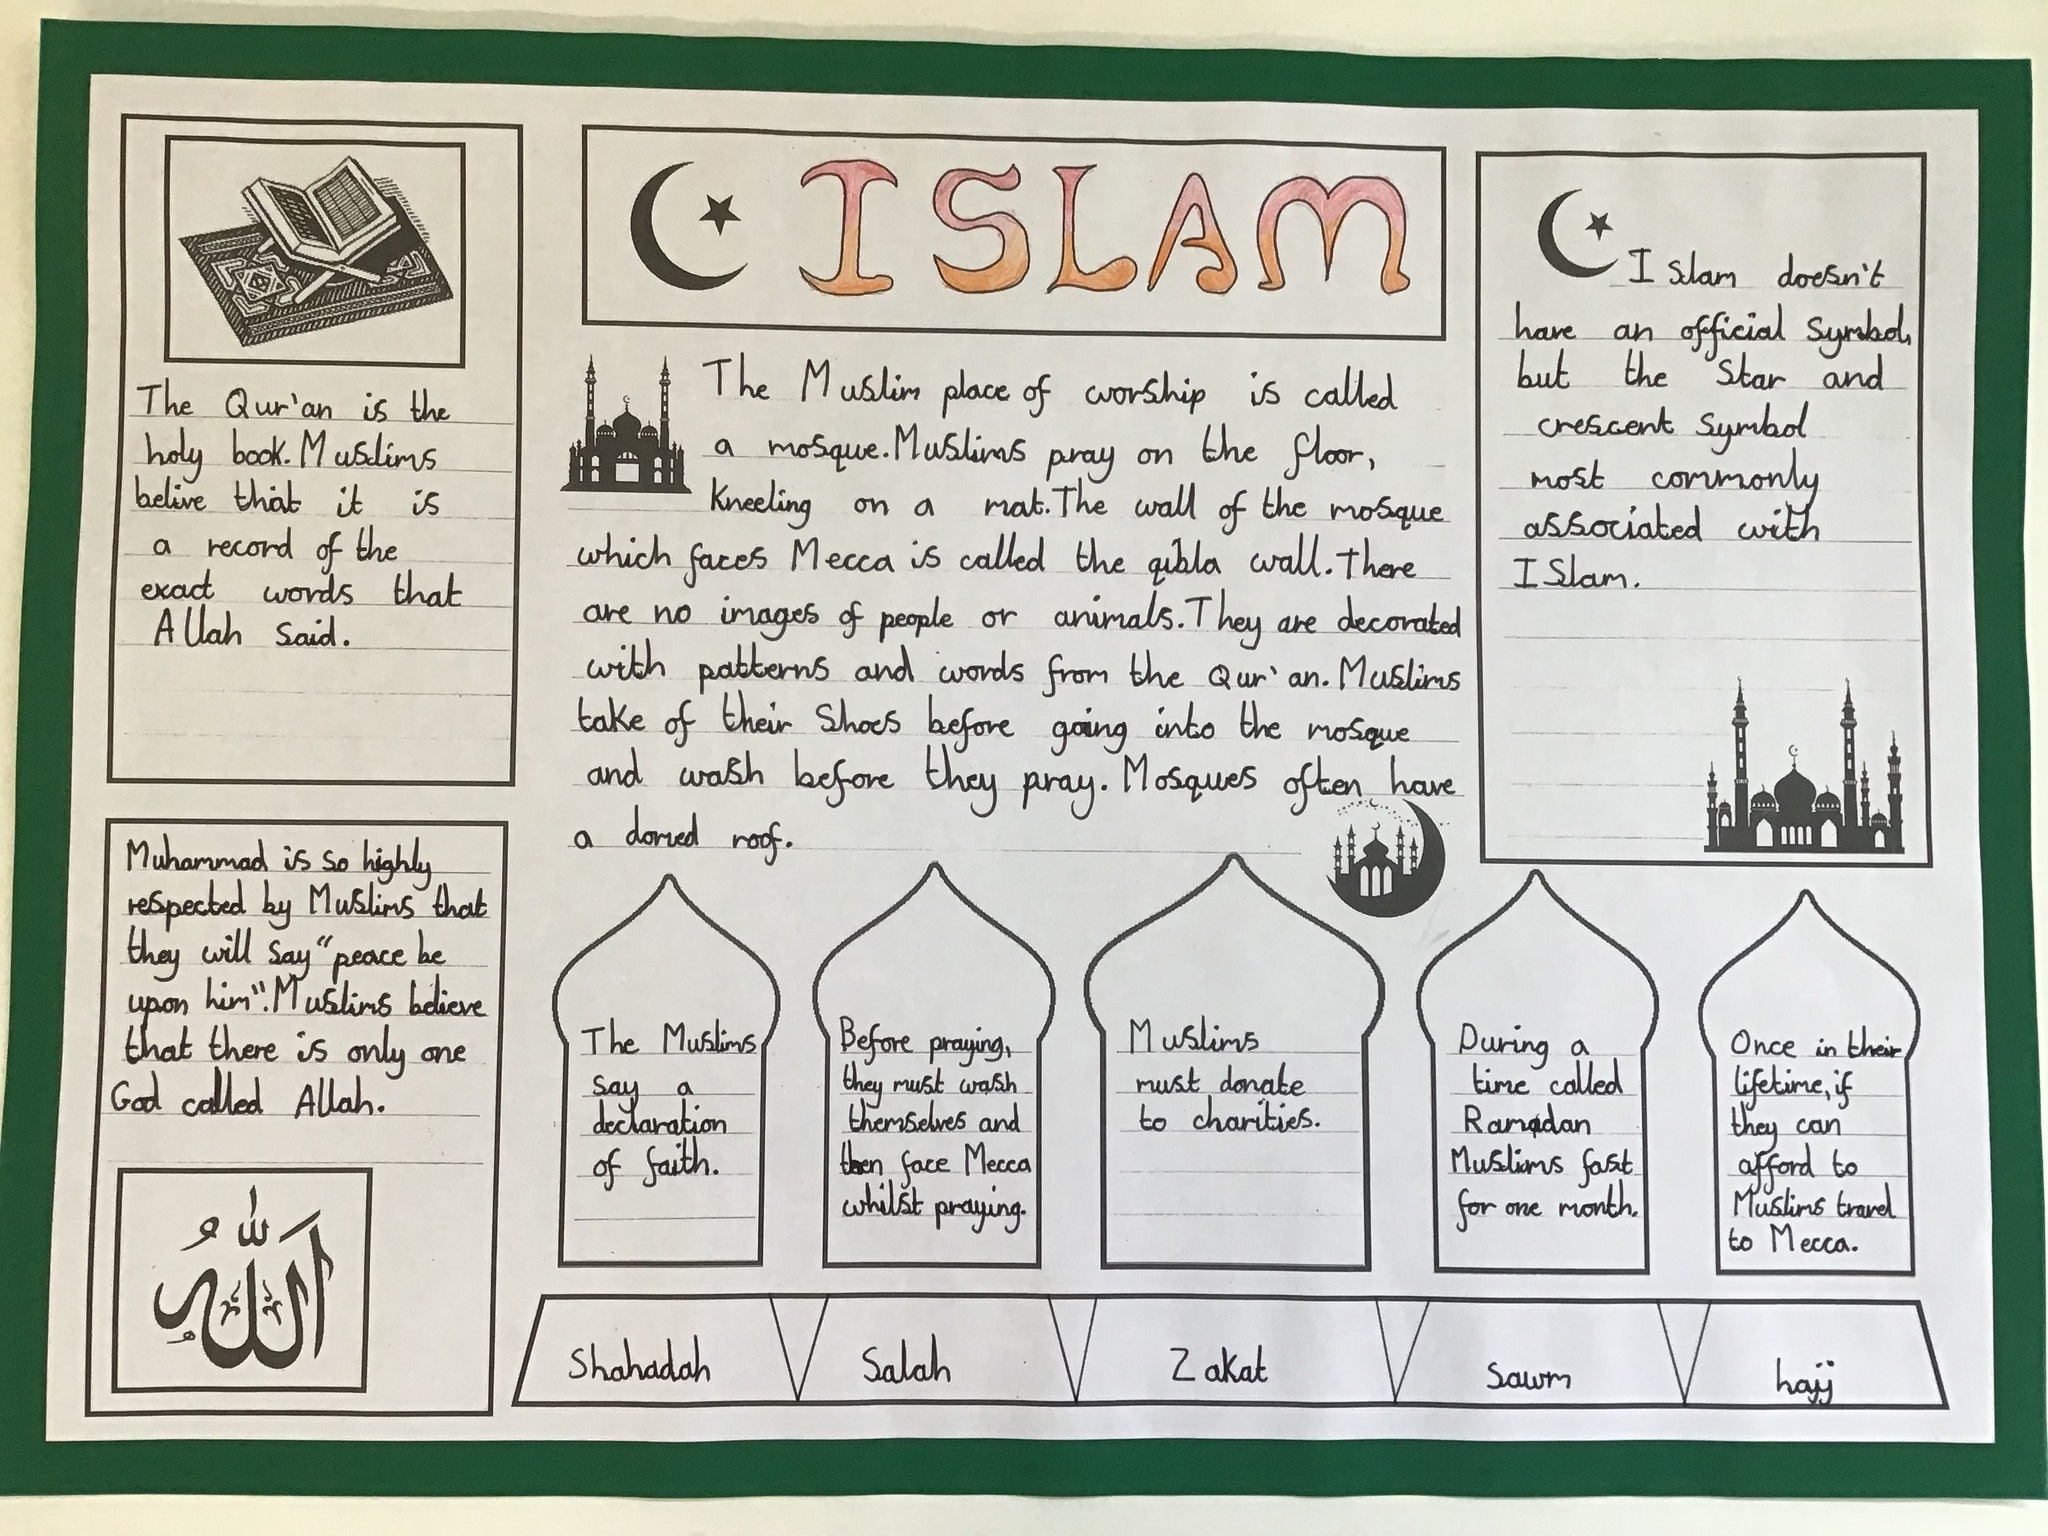 The Qur'an is the
holy book. Muslims
belive that it is
a record of the
exact words that
Allah said.
Muhammad is so highly
respected by Muslims that
they will say "peace be
upon him". Muslims believe
that there is only one
God called Allah.
الله
ISLAM
The Muslim place of worship is called
a mosque. Muslims pray on the floor,
kneeling on a mat. The wall of the mosque
which faces Mecca is called the qibla wall. There
are no images of people or animals. They are decorated
with patterns and words from the Qur'an. Muslims
take of their shoes before going into the mosque
and wash before they pray. Mosques often have
a domed roof.
Islam doesn't
have an official symbol,
but the star and
crescent symbol
most commonly
associated with
Islam.
The Muslims
say a
declaration
of faith.
Before praying,
they must wash
themselves and
then face Mecca
whilst praying.
Muslims
must donate
to charities.
During a
time called
Ramadan
Muslims fast
for one month.
Once in their
lifetime, if
they can
afford to
Muslims travel
to Mecca.
Shahadah
Salah
Zakat
sawm
hajj